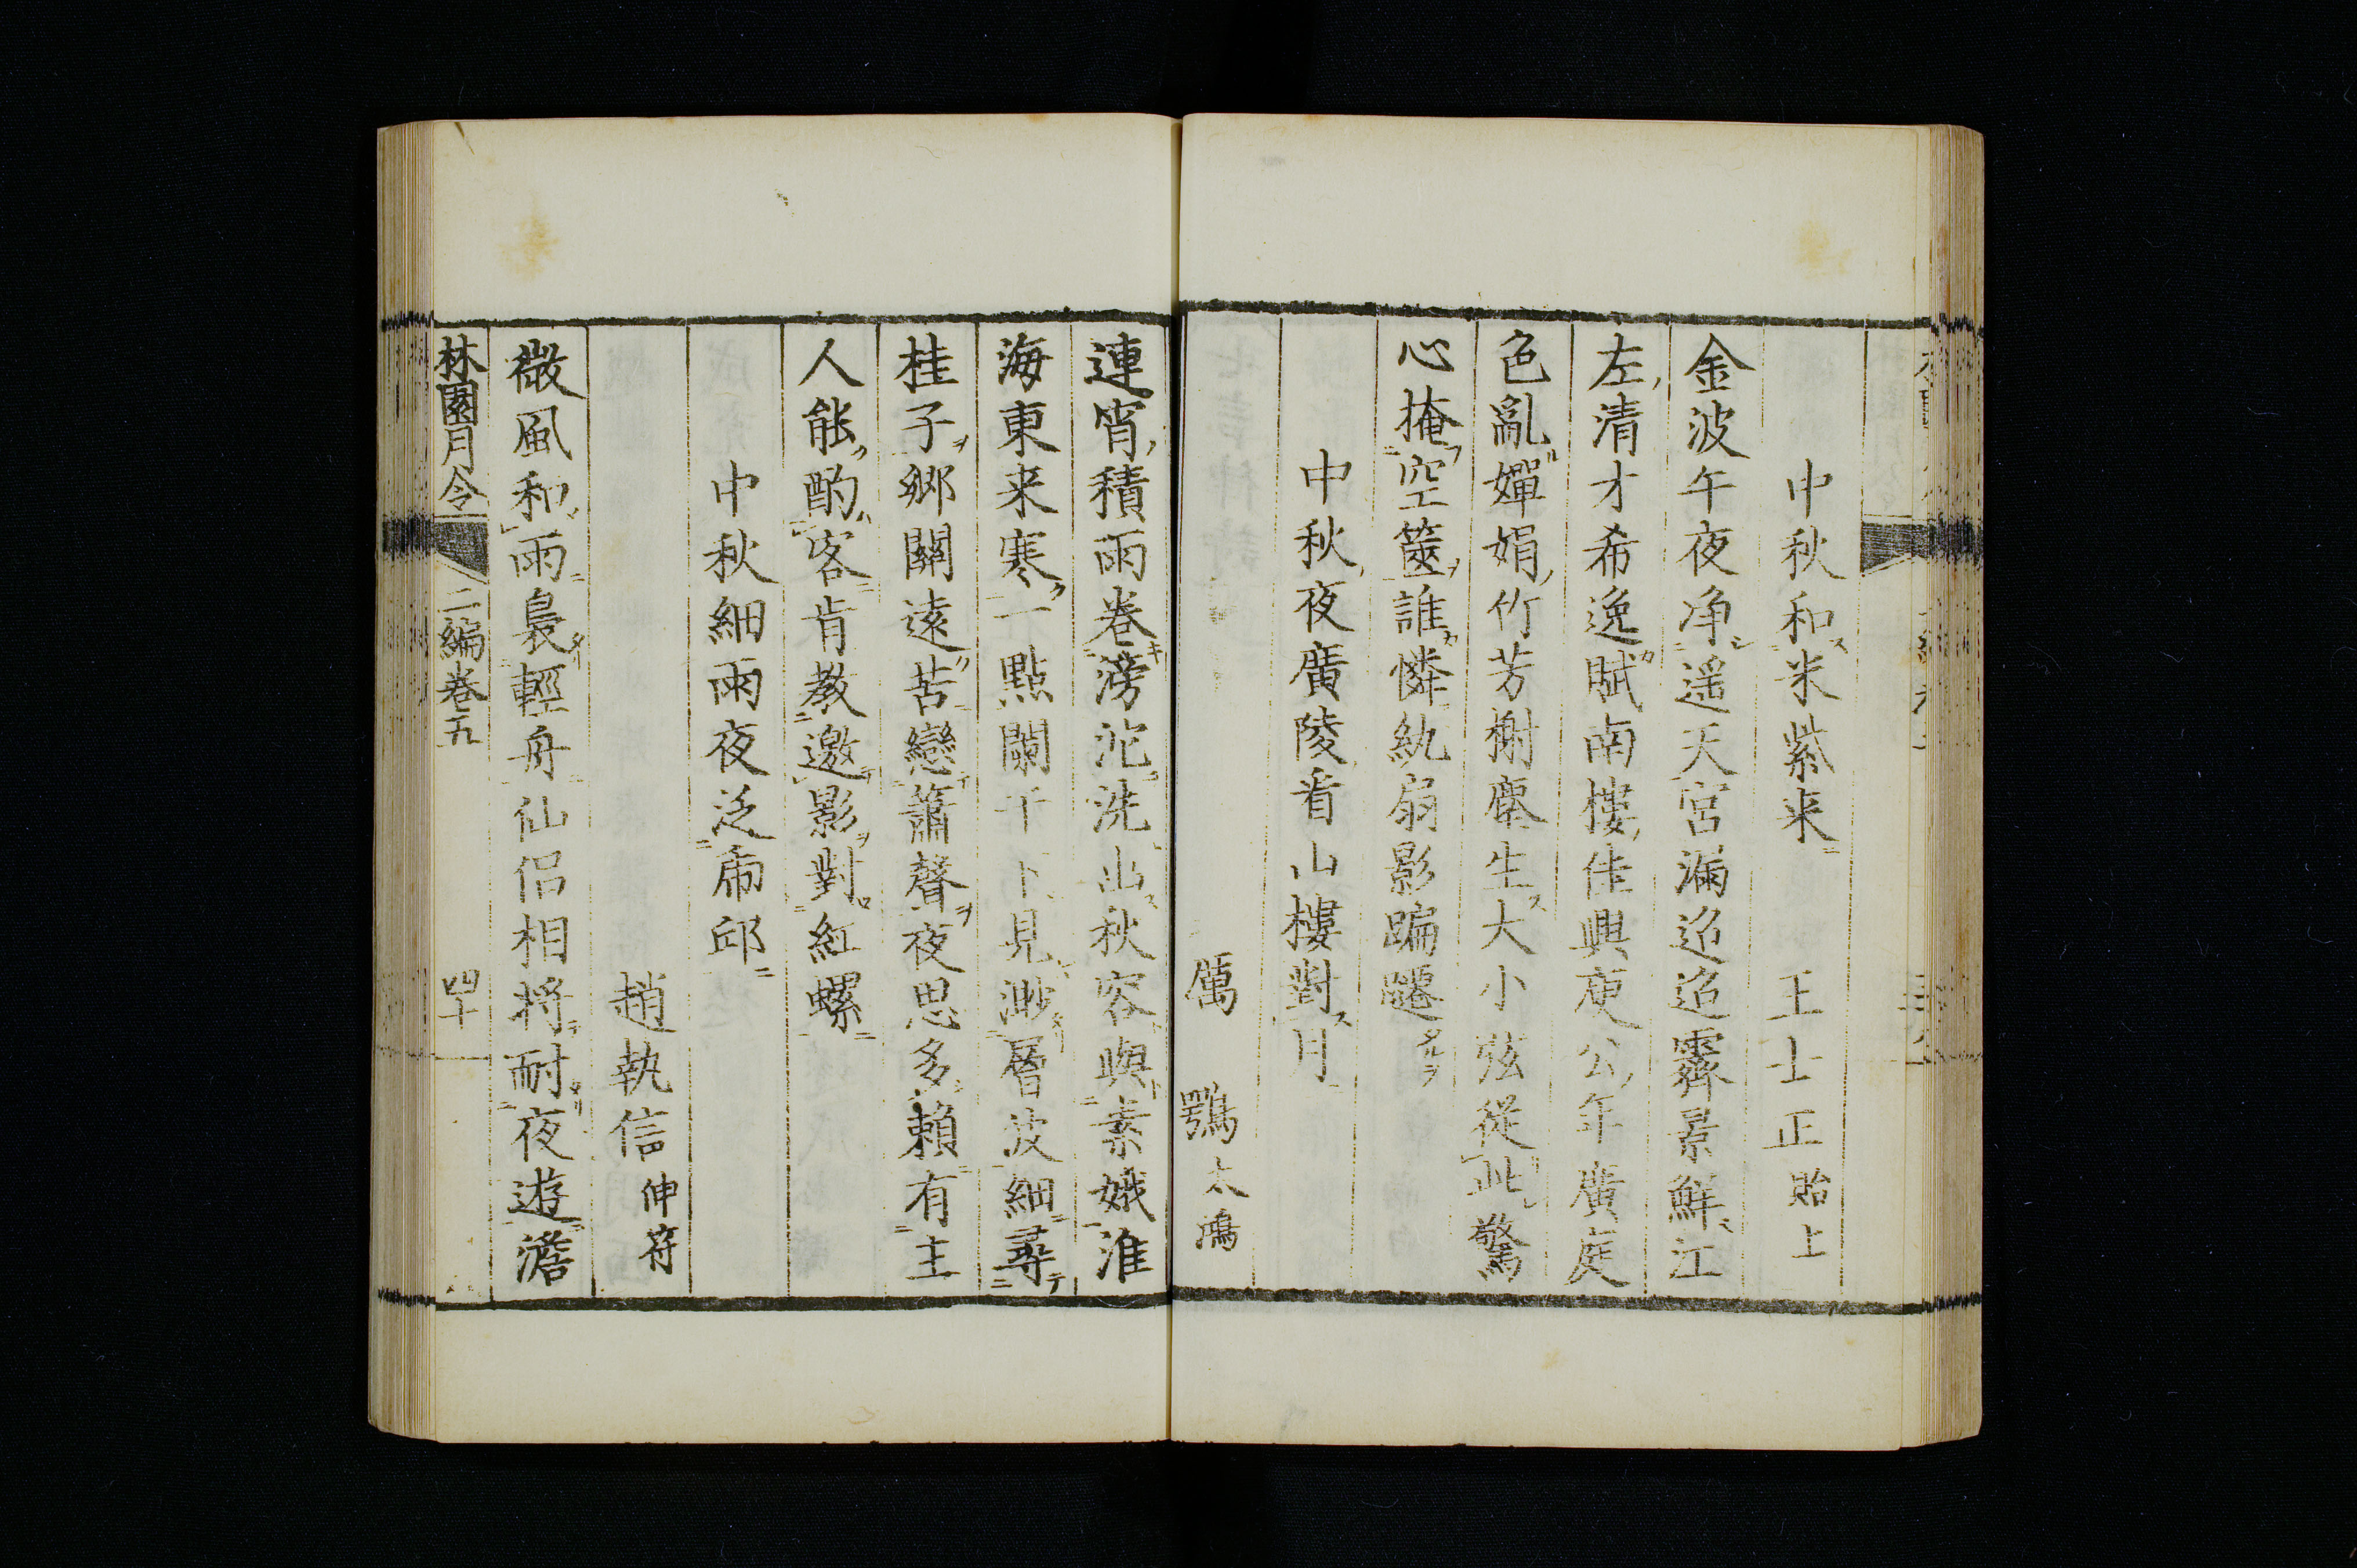 中秋和米紫来　王士正貽上
金波午夜净遥天宮漏迢迢霽景鮮江
左清才希逸賦南樓佳興庾公年廣庭
色亂嬋娟竹芳榭塵生大小弦從此驚
心掩空篋誰憐紈扇影蹁躚
中秋夜廣陵看山樓對月
厲鶚太鴻
連宵積雨巻滂沱洗出秋容與素娥淮
海東来寒一點闌干下見渺層波細尋
桂子郷關遠苦戀簫聲夜思多賴有主
人能酌客肯教邀影對紅螺
中秋細雨夜泛帚邱
趙執信伸符
微風和雨裊輕舟仙侣相将耐夜遊澹
林園月令　二編巻五　四十